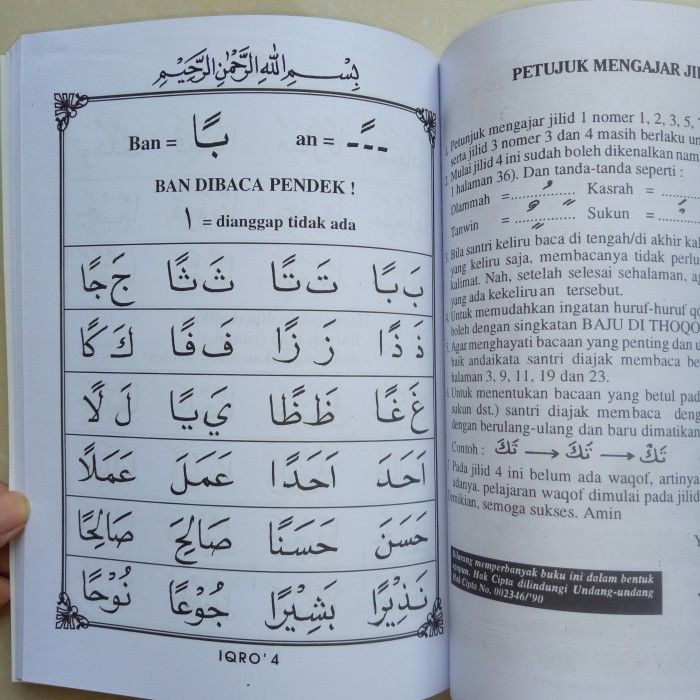 بِسْمِ اللهِ الرَّحْمٰنِ الرَّحِيْمِ
Ban = بًا an = ــًـ
BAN DIBACA PENDEK !
ا = dianggap tidak ada
بَ بًا تَ تًا ثَ ثًا جَ جًا
ذَ ذًا زَ زًا فَ فًا كَ كًا
غَ غًا ظَ ظًا يَ يًا لَ لًا
اَحَدَ اَحَدًا عَمَلَ عَمَلًا
حَسَنَ حَسَنًا صَالِحَ صَالِحًا
نَذِيْرًا بَشِيْرًا جُوْعًا نُوْحًا
IQRO' 4
PETUJUK MENGAJAR JI
1. Petunjuk mengajar jilid 1 nomer 1, 2, 3, 5,
serta jilid 3 nomer 3 dan 4 masih berlaku un
2. Mulai jilid 4 ini sudah boleh dikenalkan nam
1 halaman 36). Dan tanda-tanda seperti :
Dlammah =......... Kasrah =
Tanwin =......... Sukun =
3. Bila santri keliru baca di tengah/di akhir kal
yang keliru saja, membacanya tidak perlu
kalimat. Nah, setelah selesai sehalaman, a
yang ada kekeliruan tersebut.
4. Untuk memudahkan ingatan huruf-huruf qo
boleh dengan singkatan BAJU DI THOQO
5. Agar menghayati bacaan yang penting dan u
baik andaikata santri diajak membaca be
halaman 3, 9, 11, 19 dan 23.
6. Untuk menentukan bacaan yang betul pad
sukun dst.) santri diajak membaca deng
dengan berulang-ulang dan baru dimatikan
Contoh : تَكَ → تَكَ → تَكْ
Pada jilid 4 ini belum ada waqof, artinya
adanya, pelajaran waqof dimulai pada jilid
Demikian, semoga sukses. Amin
Dilarang memperbanyak buku ini dalam bentuk
apapun. Hak Cipta dilindungi Undang-undang
Hak Cipta No. 002346/'90